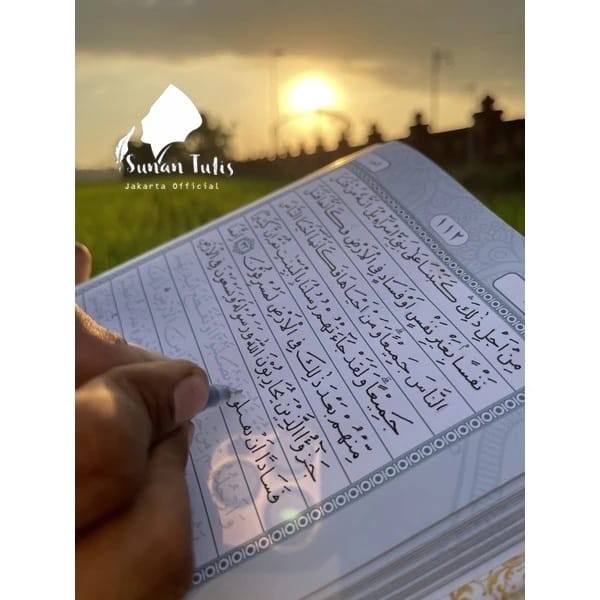 Sunan Tulis
Jakarta Official
١١٣
مِنْ اَجْلِ ذٰلِكَ كَتَبْنَا عَلٰى بَنِيْٓ اِسْرَاۤءِيْلَ اَنَّهٗ مَنْ قَتَلَ
نَفْسًا بِغَيْرِ نَفْسٍ اَوْ فَسَادٍ فِى الْاَرْضِ فَكَاَنَّمَا قَتَلَ
النَّاسَ جَمِيْعًا وَمَنْ اَحْيَاهَا فَكَاَنَّمَآ اَحْيَا النَّاسَ
جَمِيْعًا وَلَقَدْ جَاۤءَتْهُمْ رُسُلُنَا بِالْبَيِّنٰتِ ثُمَّ اِنَّ كَثِيْرًا
مِّنْهُمْ بَعْدَ ذٰلِكَ فِى الْاَرْضِ لَمُسْرِفُوْنَ ٣٢ اِنَّمَا
جَزٰۤؤُا الَّذِيْنَ يُحَارِبُوْنَ اللّٰهَ وَرَسُوْلَهٗ وَيَسْعَوْنَ فِى الْاَرْضِ
فَسَادًا اَنْ يُّقَتَّلُوْٓا